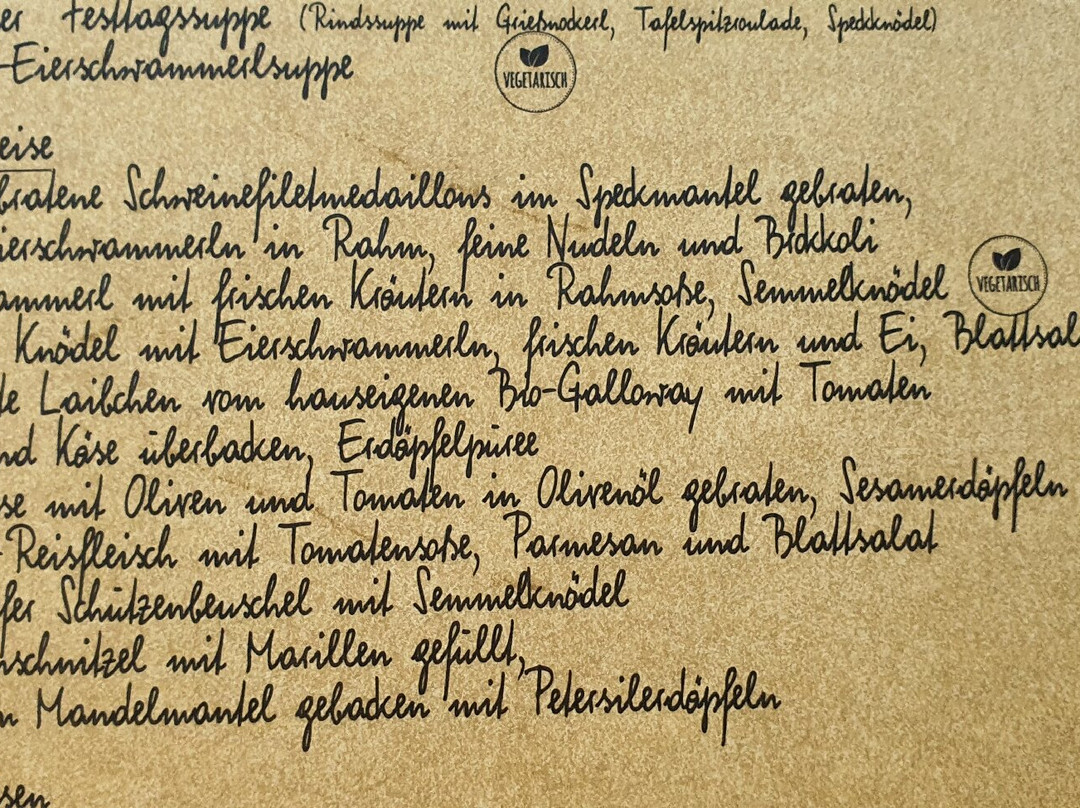 er Festtagssuppe (Rindssuppe mit Grießnockerl, Tafelspitzroulade, Speckknödel)
-Eierschwammerlsuppe VEGETARISCH
eise
bratene Schweinefiletmedaillons im Speckmantel gebraten,
ierschwammerln in Rahm, feine Nudeln und Brokkoli
ammerl mit frischen Kräutern in Rahmsoße, Semmelknödel VEGETARISCH
Knödel mit Eierschwammerln, frischen Kräutern und Ei, Blattsal
te Laibchen vom hauseigenen Bio-Galloway mit Tomaten
nd Käse überbacken, Erdäpfelpüree
se mit Oliven und Tomaten in Olivenöl gebraten, Sesamerdäpfeln
-Reisfleisch mit Tomatensoße, Parmesan und Blattsalat
fer Schützenbeuschel mit Semmelknödel
nschnitzel mit Marillen gefüllt,
n Mandelmantel gebacken mit Petersilerdäpfeln
sen